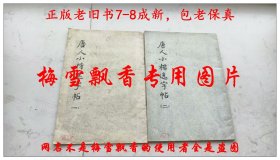 正版老旧书7-8成新，包老保真
唐人小楷选字帖（一）
唐人小楷选字帖（二）
梅雪飘香专用图片
网名不是梅雪飘香的使用者全是盗图